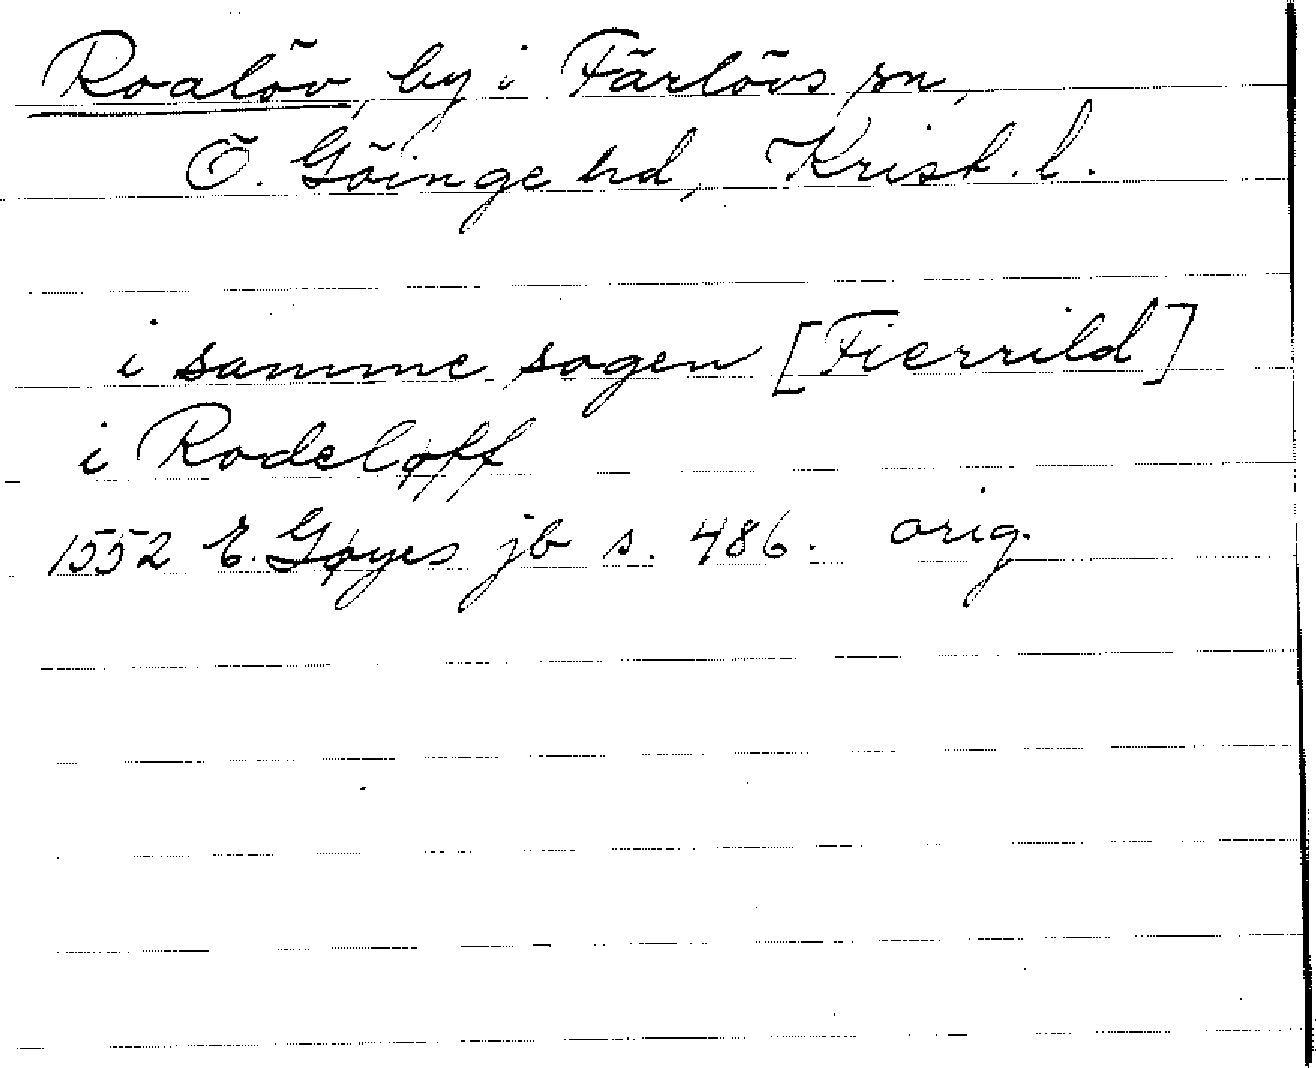 Roalöv, by i Färlövs sn,
Ö. Göinge hd, Krist. l.
i samme sogen [Fierrild]
i Rodeløff
1552 E. Gøyes jb s. 486. orig.